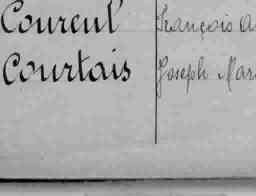 Coureul François A
Courtais Joseph Mar